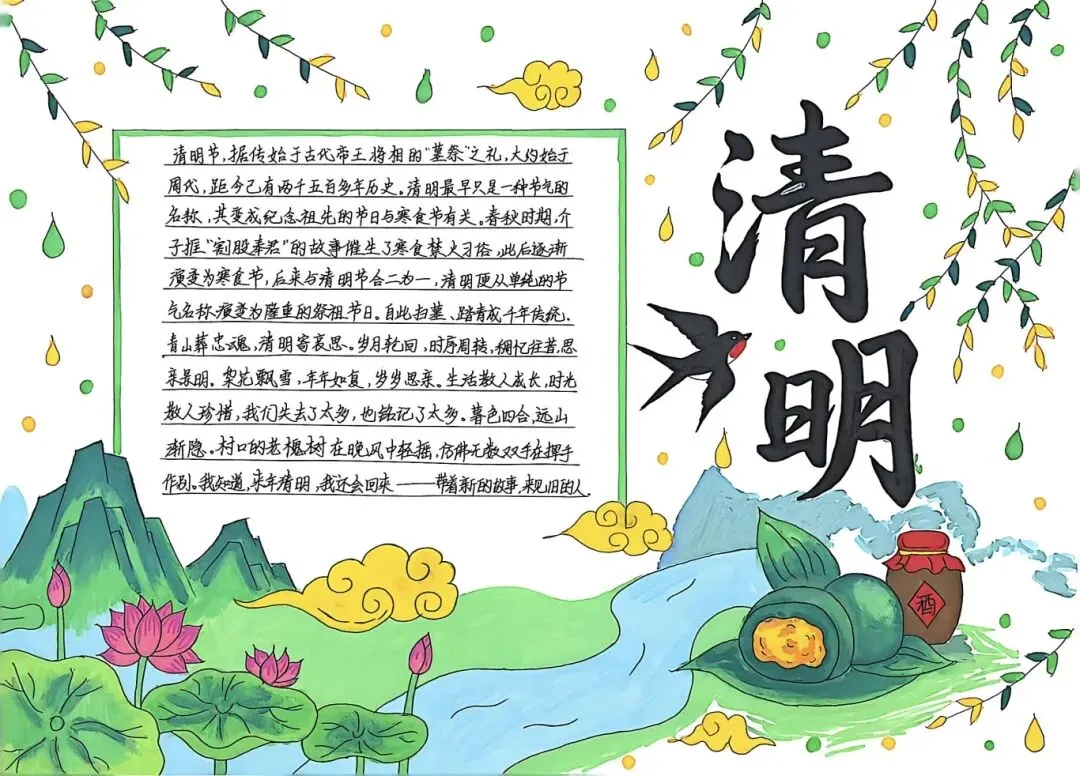 清明节,据传始于古代帝王将相的“墓祭”之礼,大约始于
周代,距今已有两千五百多年历史。清明最早只是一种节气的
名称,其变成纪念祖先的节日与寒食节有关。春秋时期,介
子推“割股奉君”的故事催生了寒食禁火习俗,此后逐渐
演变为寒食节,后来与清明节合二为一,清明便从单纯的节
气名称演变为隆重的祭祖节日。自此扫墓、踏青成千年传统.
青山葬忠魂,清明寄哀思。岁月轮回,时序周转,稠忆往昔,思
亲最明。梨花飘雪,年年如复,岁岁思亲。生活教人成长,时光
教人珍惜,我们失去了太多,也铭记了太多。暮色四合,远山
渐隐。村口的老槐树在晚风中轻摇,仿佛无数双手在挥手
作别。我知道,来年清明,我还会回来——带着新的故事,来见旧的人。
清
明
酒